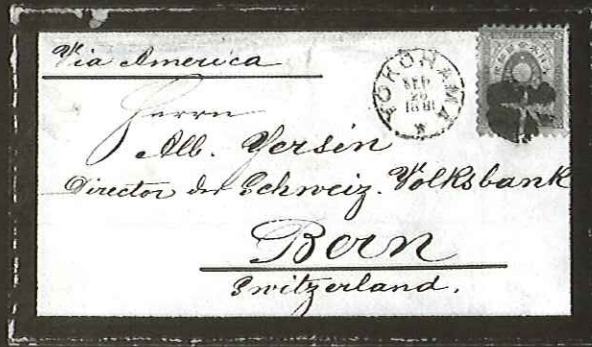 Via America
YOKOHAMA
SEP
26
1881
Herrn
Alb. Yersin
Director der Schweiz. Volksbank
Bern
Switzerland.